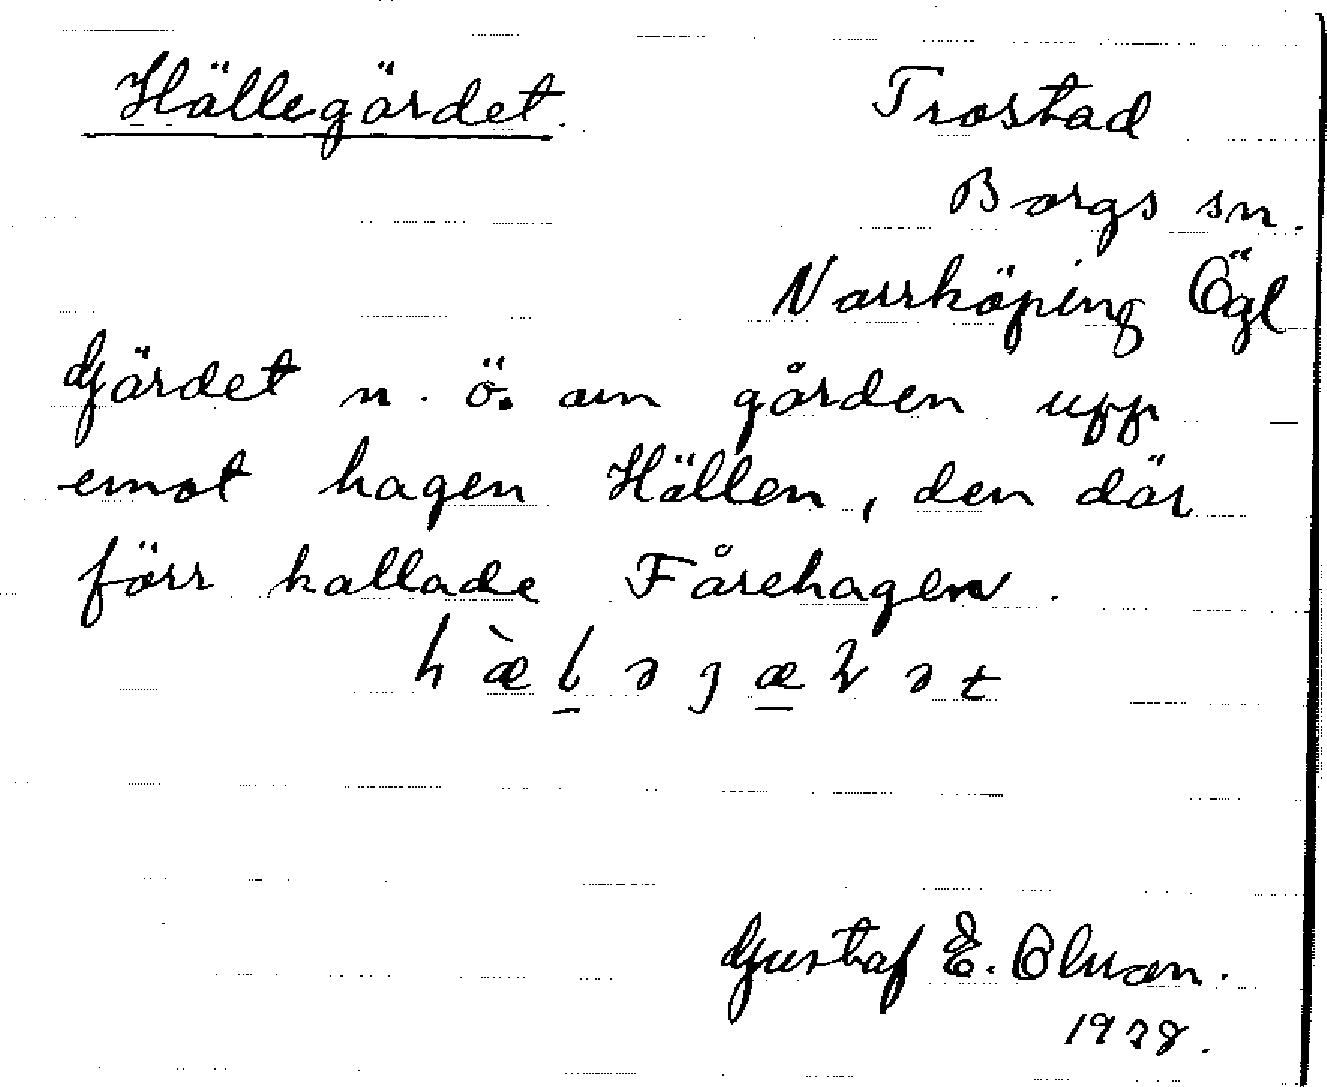 Hällegärdet. Trostad
Borgs sn.
Norrköping Ögl
Gärdet n. ö. om gården upp
emot hagen Hällen, den där
förr kallade Fårehagen.
Gustaf E. Olson.
1928.